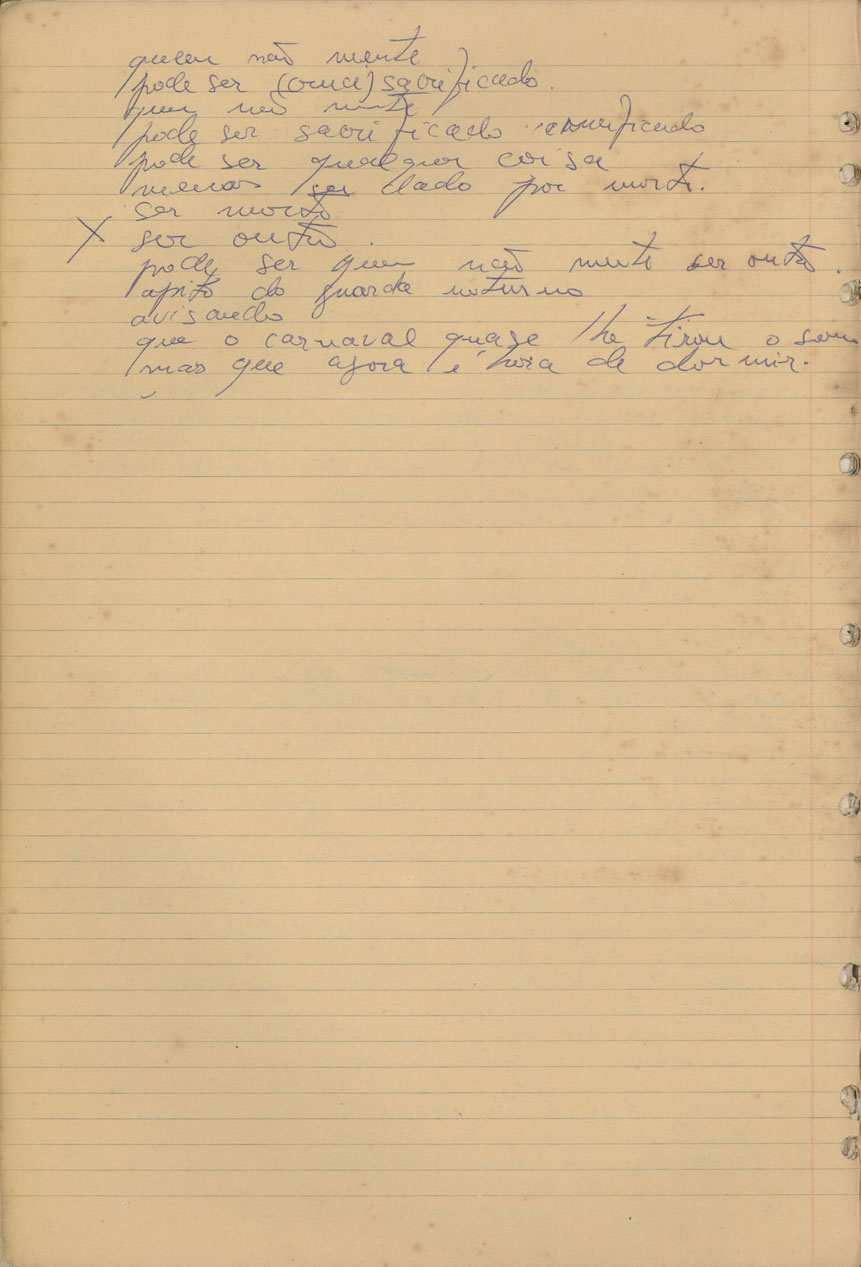 quem não mente
pode ser (cruci) sacrificado.
quem não mente
pode ser sacrificado crucificado
pode ser qualquer coisa
menos ser dado por morto.
ser morto
X ser outro.
pode ser quem não mente ser outro.
apito do guarda noturno
avisando
que o carnaval quase lhe tirou o sono
mas que agora é hora de dormir.